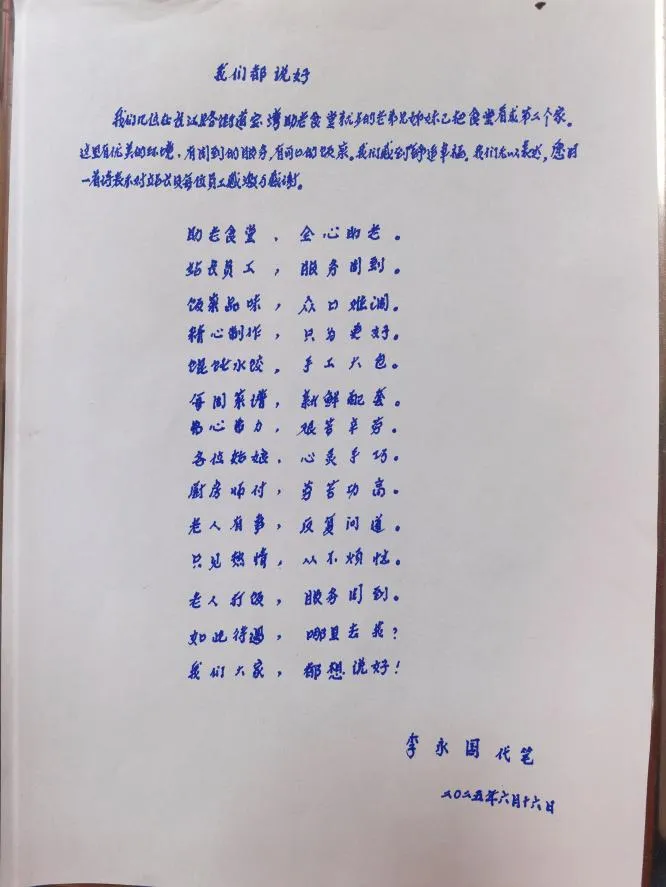 我们都说好
我们几位在长江路街道宝增助老食堂就歺的老弟兄姊妹已把食堂看成第二个家。
这里有优美的环境,有周到的服务,有可口的饭菜。我们感到舒适幸福。我们无以表达,愿用
一首诗表示对站长及每位员工感激与感谢。
助老食堂,全心助老。
站长员工,服务周到。
饭菜品味,众口难调。
精心制作,只为更好。
馄饨水饺,手工大包。
每周菜谱,新鲜配套。
劳心劳力,艰苦辛劳。
各位姑娘,心灵手巧。
厨房师付,劳苦功高。
老人有事,反复问道。
只见热情,从不烦恼。
老人打饭,服务周到。
如此待遇,哪里去找?
我们大家,都想说好!
李永国代笔
二〇二五年六月十六日